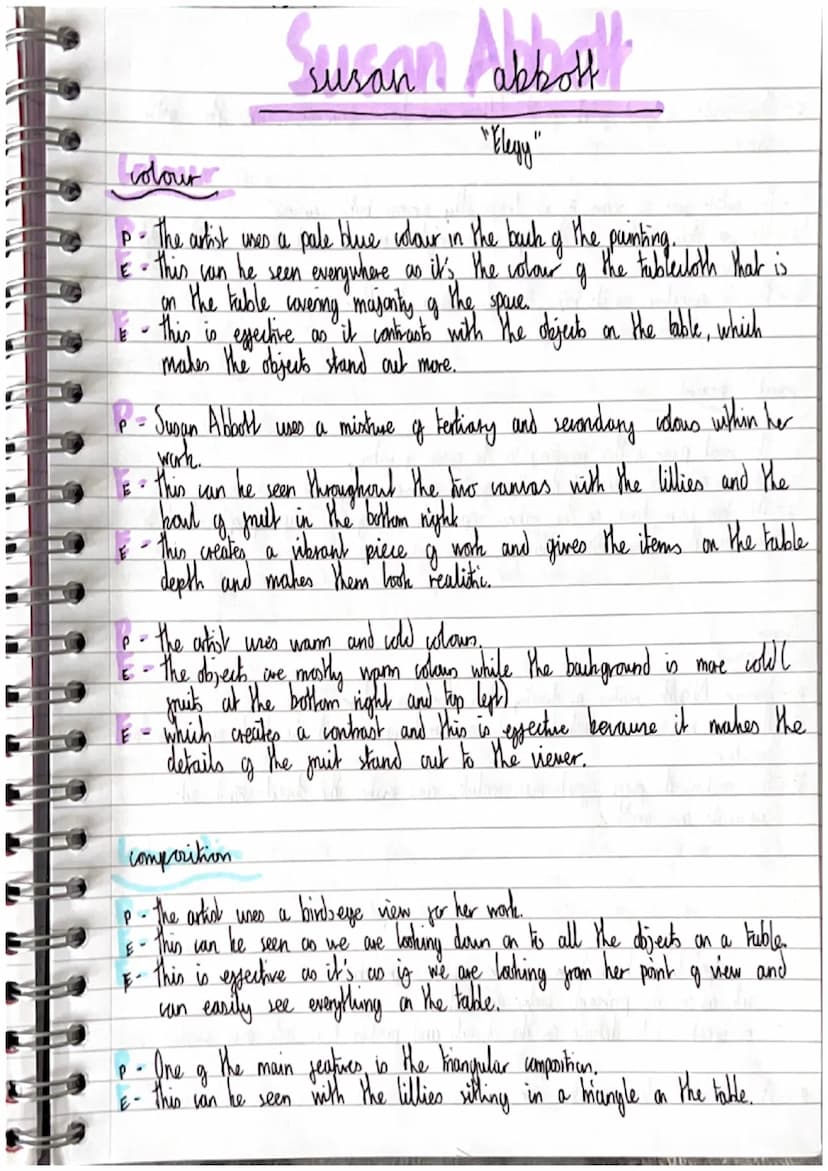 Susan Abbott
susan abbott
"Elegy"
Colour
colour
P - the artist uses a pale blue colour in the back of the painting.
E - this can be seen everywhere as it's the colour of the tablecloth that is
on the table covering majority of the space.
E - this is effective as it contrasts with the objects on the table, which
makes the objects stand out more.
P - Susan Abbott uses a mixture of tertiary and secondary colous within her
work.
E - this can be seen throughout the two canvas with the lillies and the
bowl of fruit in the bottom right
E - this creates a vibrant piece of work and gives the items on the table
depth and makes them look realistic.
P - the artist uses warm and cold colours.
E - the objects are mostly warm colours while the background is more cold (
fruits at the bottom right and top left)
E - which creates a contrast and this is effective because it makes the
details of the fruit stand out to the viewer.
composition
P - the artist uses a birdseye view for her work.
E - this can be seen as we are looking down on to all the objects on a table.
E - this is effective as it's as if we are looking from her point of view and
can easily see everything on the table.
P - One of the main features is the triangular composition.
E - this can be seen with the lillies sitting in a triangle on the table.